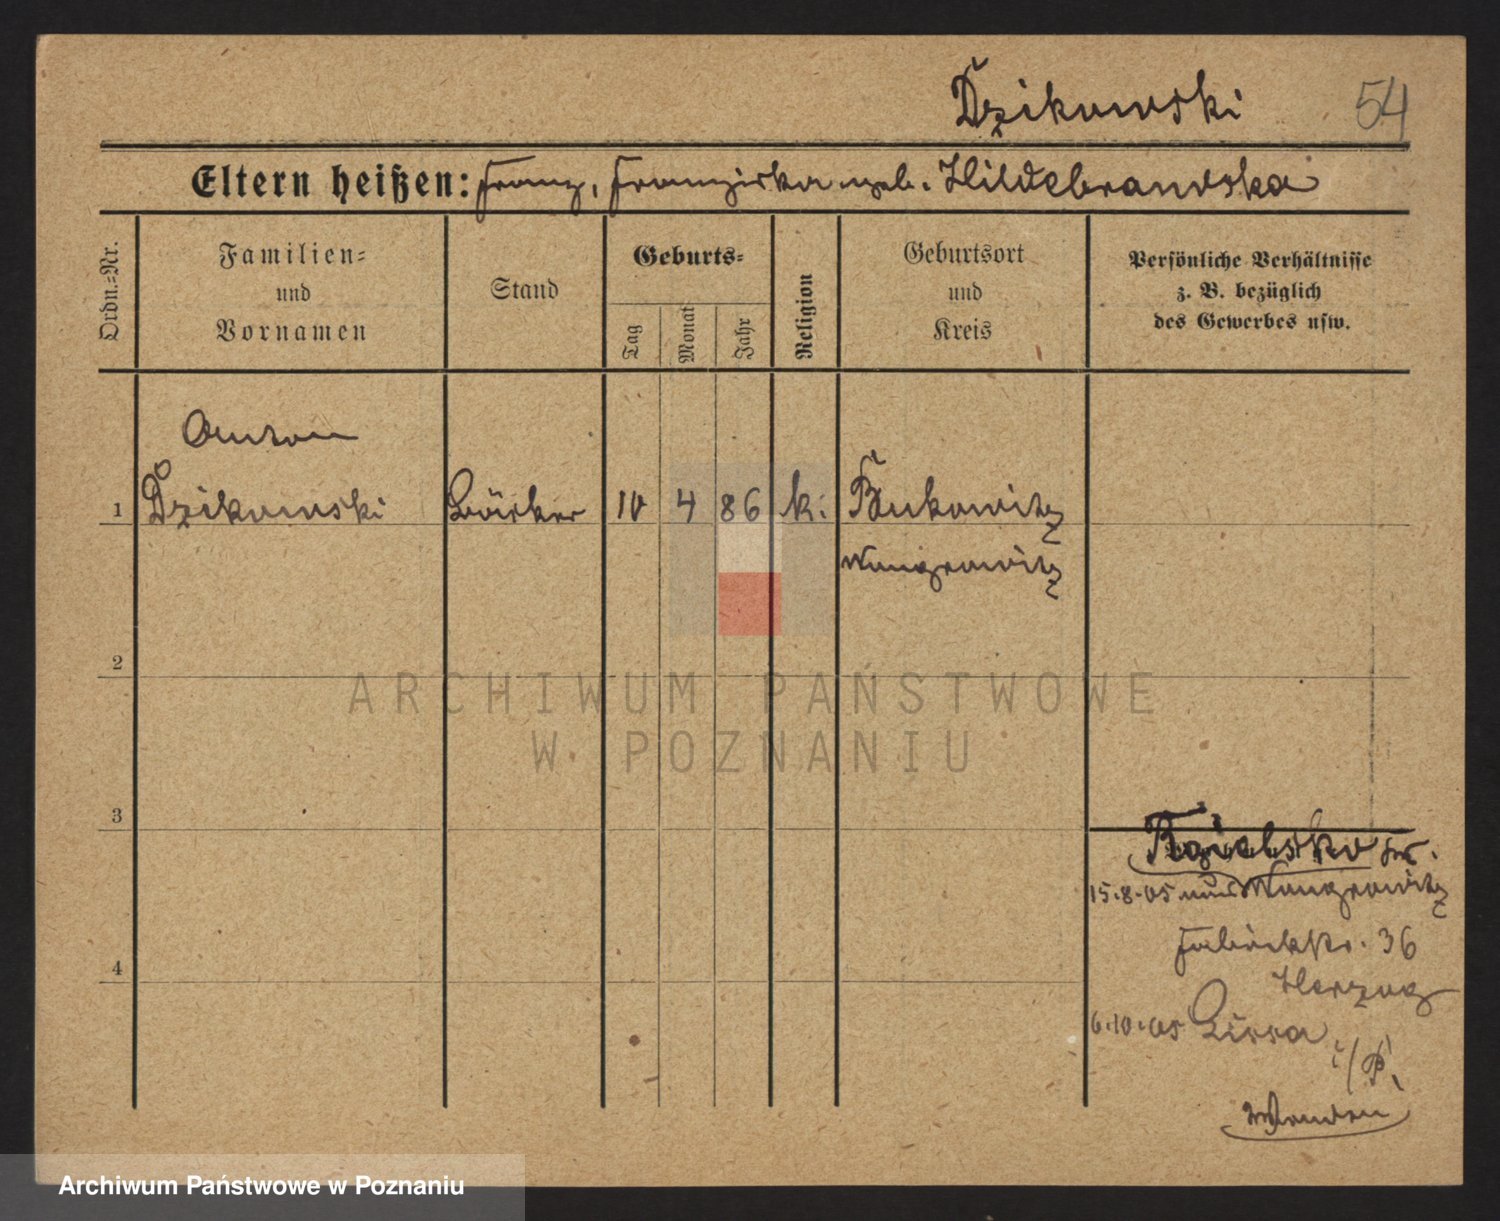 Dzikowski 54
Eltern heißen: Franz, Franziska geb. Hildebrandska
Ordn.-Nr.
Familien-
und
Vornamen
Stand
Geburts-
Tag
Monat
Jahr
Religion
Geburtsort
und
Kreis
Persönliche Verhältnisse
z. B. bezüglich
des Gewerbes usw.
Anton
1 Dzikowski Bäcker 10 4 86 k. Bukowitz
Wongrowitz
2
3
4
15.8.05 aus Wongrowitz
Fabrikstr. 36
Herzog
6.10.05 Lissa
i/P.
ARCHIWUM PAŃSTWOWE
W POZNANIU
Archiwum Państwowe w Poznaniu